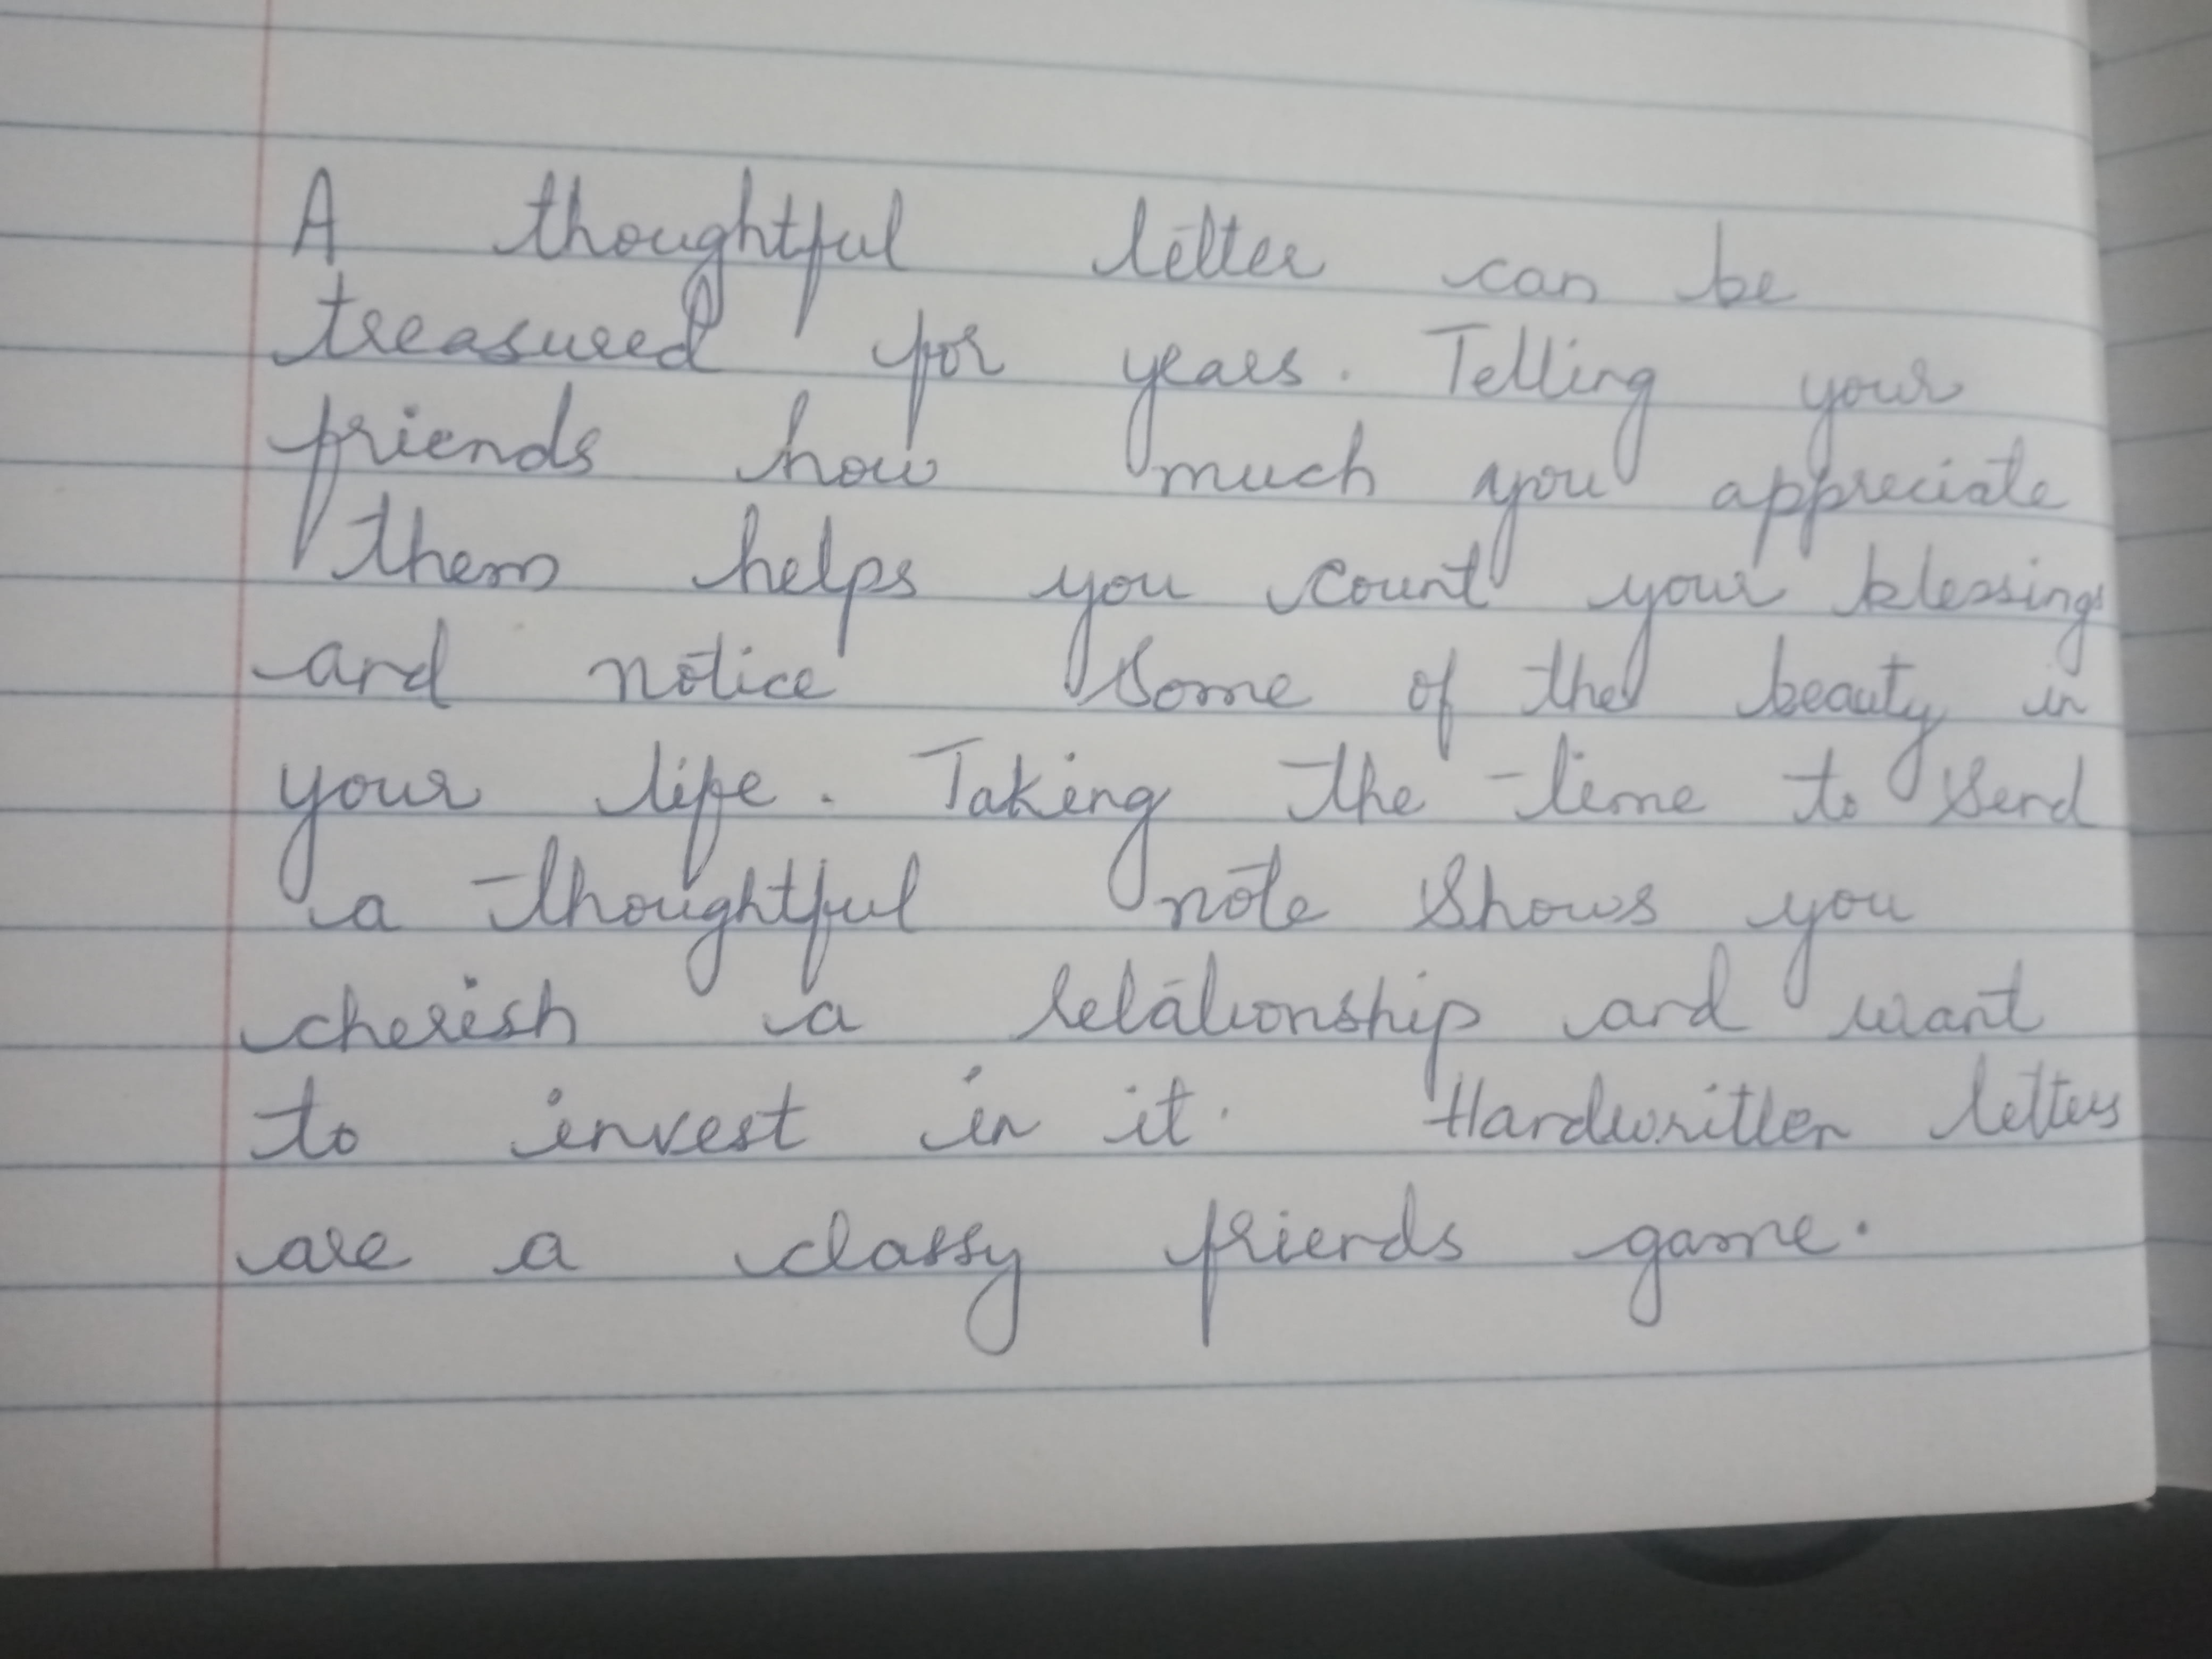 A thoughtful letter can be
treasured for years. Telling your
friends how much you appreciate
them helps you count your blessings
and notice some of the beauty in
your life. Taking the time to send
a thoughtful note shows you
cherish a relationship and want
to invest in it. Handwritten letters
are a classy friends game.